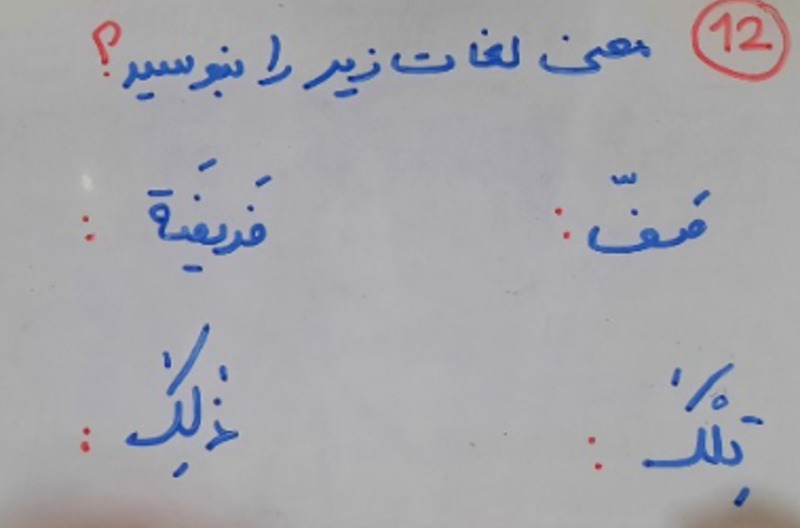 12 معنی لغات زیر را بنویسید؟
صَفّ : فَریضَة :
تِلْكَ : ذٰلِكَ :